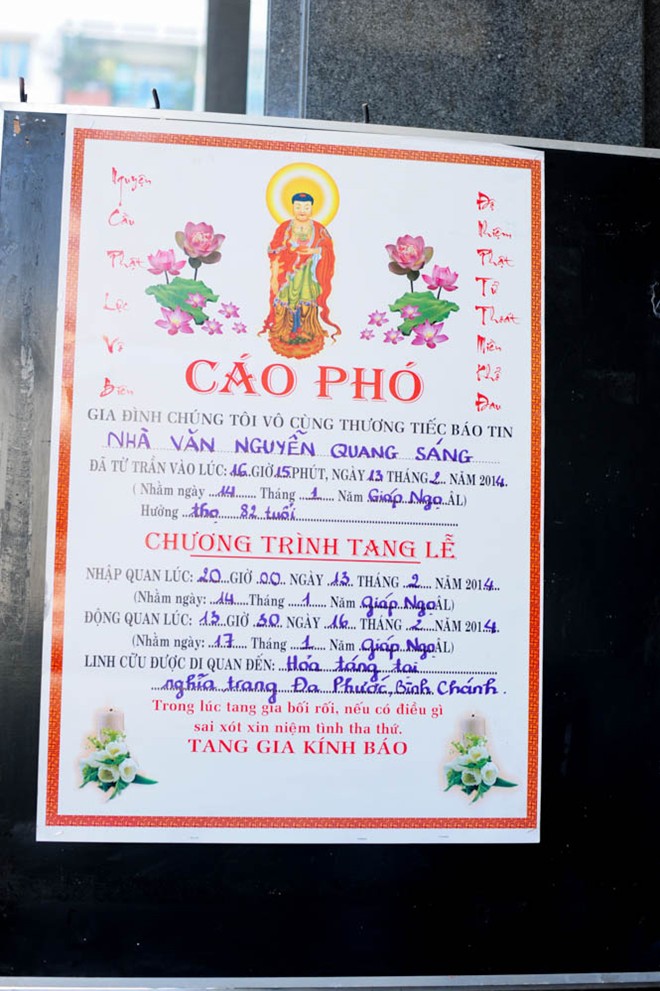 Nguyện
Cầu
Phật
Lực
Vô
Biên
Độ
Niệm
Phật
Tử
Thoát
Miền
Khổ
Đau
CÁO PHÓ
GIA ĐÌNH CHÚNG TÔI VÔ CÙNG THƯƠNG TIẾC BÁO TIN
NHÀ VĂN NGUYỄN QUANG SÁNG
ĐÃ TỪ TRẦN VÀO LÚC: 16 GIỜ 15 PHÚT, NGÀY 13 THÁNG 2 NĂM 2014.
( Nhằm ngày 14 Tháng 1 Năm Giáp Ngọ ÂL)
Hưởng thọ 82 tuổi
CHƯƠNG TRÌNH TANG LỄ
NHẬP QUAN LÚC: 20 GIỜ 00 NGÀY 13 THÁNG 2 NĂM 2014
(Nhằm ngày: 14 Tháng 1 Năm Giáp Ngọ ÂL)
ĐỘNG QUAN LÚC: 13 GIỜ 30 NGÀY 16 THÁNG 2 NĂM 2014
(Nhằm ngày: 17 Tháng 1 Năm Giáp Ngọ ÂL)
LINH CỮU ĐƯỢC DI QUAN ĐẾN: Hỏa táng tại
nghĩa trang Đa Phước, Bình Chánh.
Trong lúc tang gia bối rối, nếu có điều gì
sai xót xin niệm tình tha thứ.
TANG GIA KÍNH BÁO